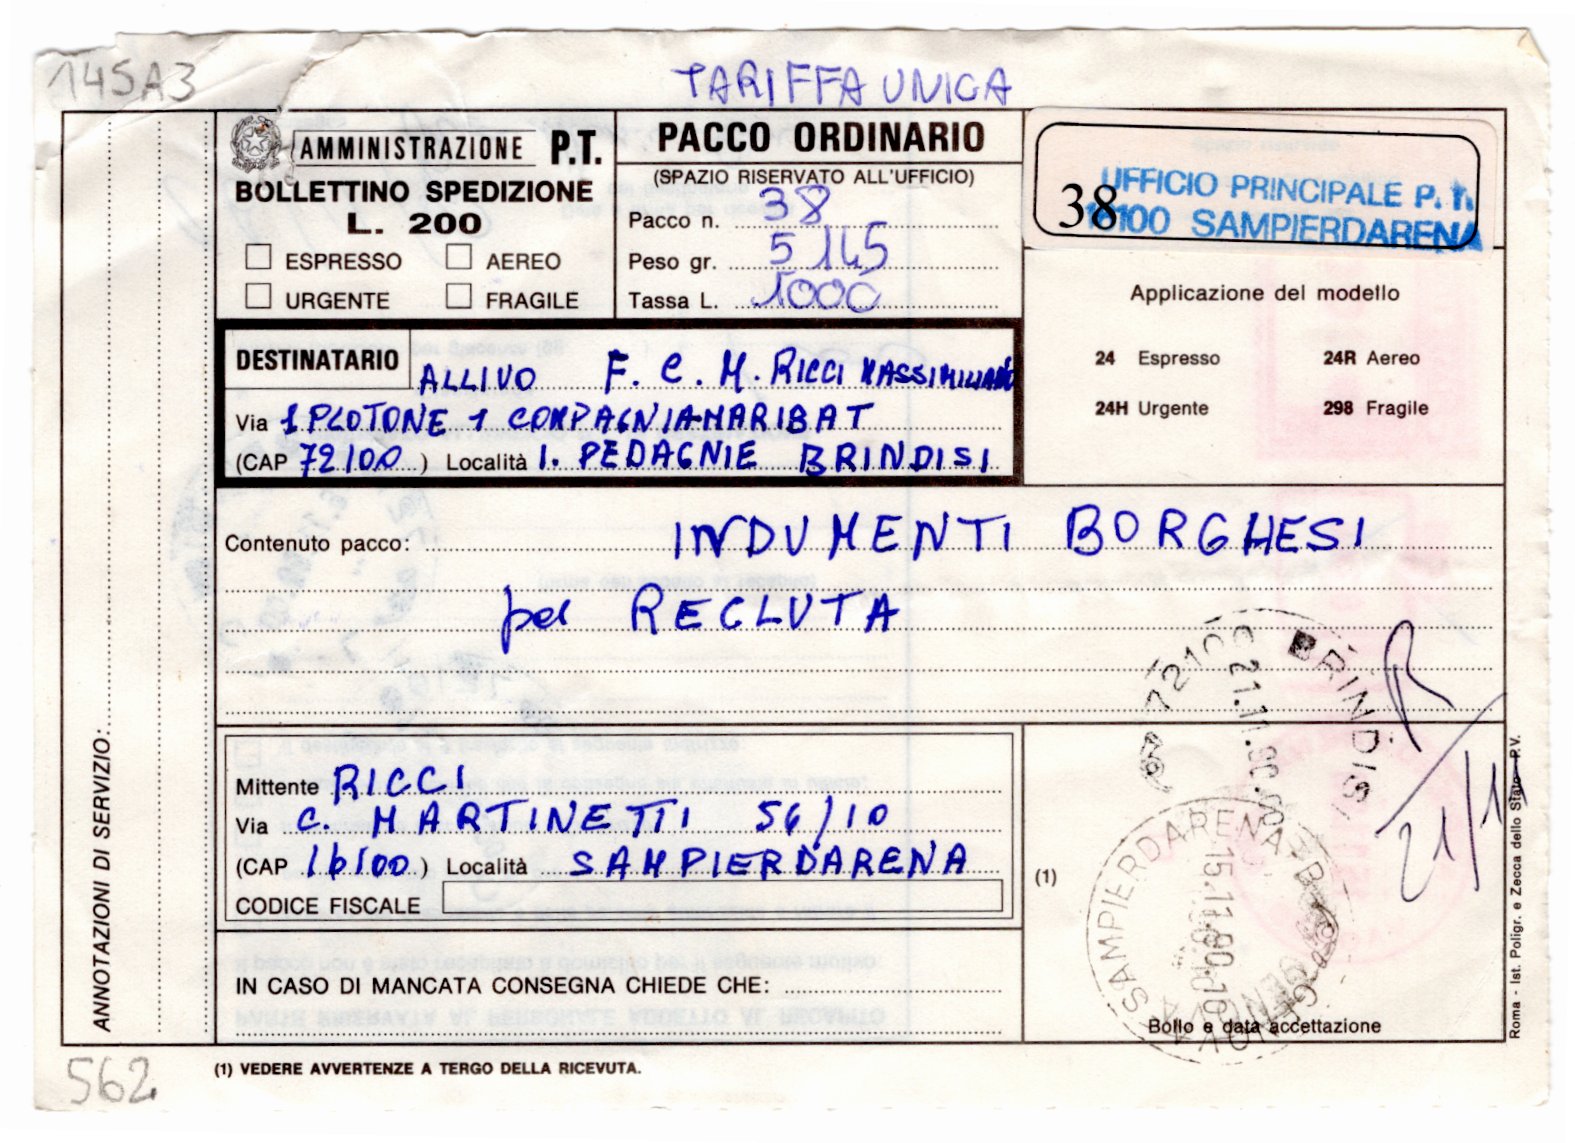 145A3
TARIFFA UNICA
AMMINISTRAZIONE P.T.
BOLLETTINO SPEDIZIONE
L. 200
ESPRESSO AEREO
URGENTE FRAGILE
PACCO ORDINARIO
(SPAZIO RISERVATO ALL'UFFICIO)
Pacco n. 38
Peso gr. 5145
Tassa L. 1000
38
UFFICIO PRINCIPALE P. T.
16100 SAMPIERDARENA
Applicazione del modello
24 Espresso 24R Aereo
24H Urgente 298 Fragile
DESTINATARIO ALLIVO F. C. M. RICCI MASSIMILIANO
Via 1 PLOTONE 1 COMPAGNIA MARIBAT
(CAP 72100) Località I. PEDAGNIE BRINDISI
Contenuto pacco: INDUMENTI BORGHESI
per RECLUTA
72100 BRINDISI
21.11.90
R
21/11
Mittente RICCI
Via C. MARTINETTI 56/10
(CAP 16100) Località SAMPIERDARENA
CODICE FISCALE
IN CASO DI MANCATA CONSEGNA CHIEDE CHE:
(1)
SAMPIERDARENA
15.11.90-10
GENOVA
Bollo e data accettazione
ANNOTAZIONI DI SERVIZIO:
Roma - Ist. Poligr. e Zecca dello Stato - P.V.
(1) VEDERE AVVERTENZE A TERGO DELLA RICEVUTA.
562